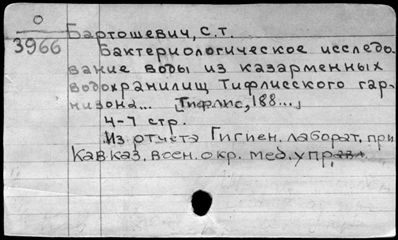 О
3966
Бартошевич, С.Т.
Бактериологическое исследо-
вание воды из казарменных
водохранилищ Тифлисского гар-
низона... [Тифлис, 188...]
4-7 стр.
Из отчета Гигиен. лаборат. при
Кавказ. воен. окр. мед. упр.